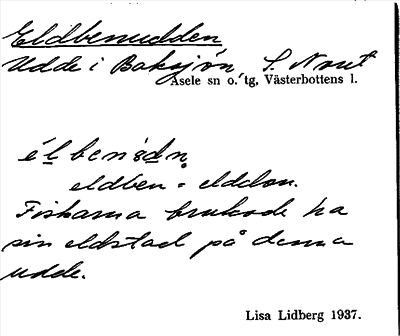 Eldbenudden
Udde i Baksjön, S. Nout
Åsele sn o. tg, Västerbottens l.
élbenùdn
eldben = elddon.
Fiskarna brukade ha
sin eldstad på denna
udde.
Lisa Lidberg 1937.